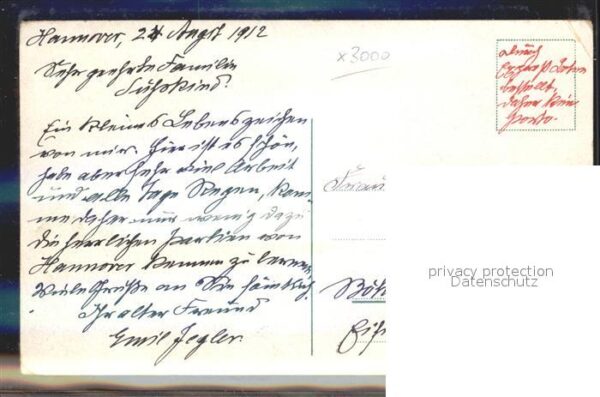 Hannover, 24 Augst 1912
Sehr geehrte Familie
Süßkind!
Ein kleines Lebenszeichen
von mir. Hier ist es schön,
habe aber sehr viel Arbeit
und alle Tage Regen, kom-
me daher nur wenig dazu
die herrlichen Partien von
Hannover kennen zu lernen.
Viele Grüße an Sie sämtlich.
Ihr alter Freund
Emil Jegler.
x3000
durch
Expreß Boten
bestellt,
daher kein
Porto.
privacy protection
Datenschutz